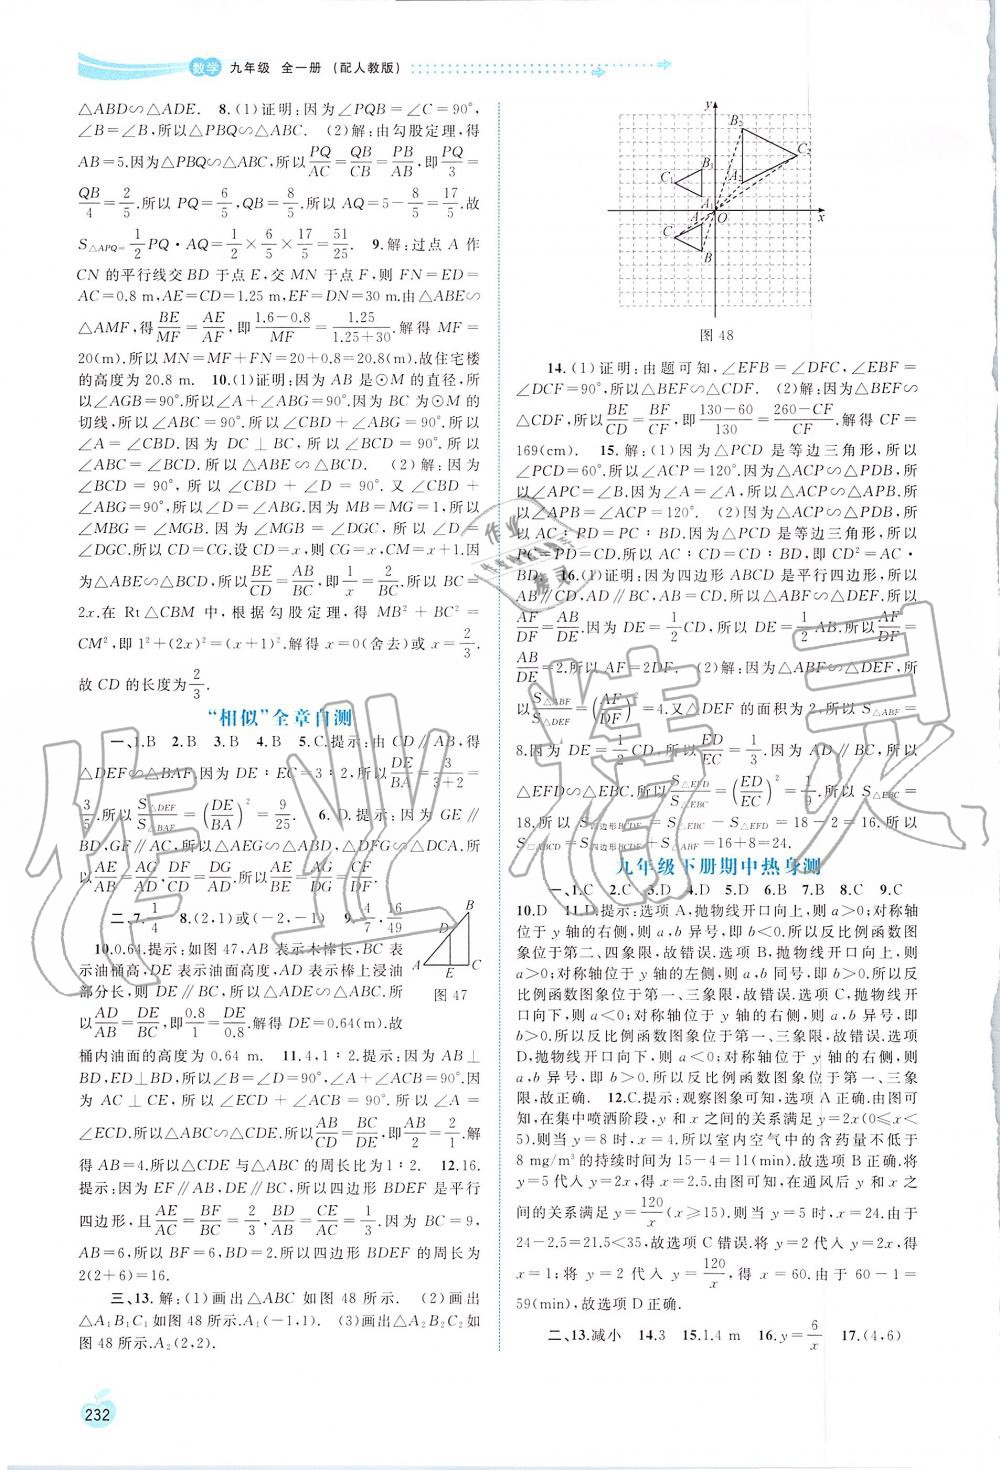 数学 九年级 全一册 (配人教版)
△ABD∽△ADE. 8.(1)证明:因为∠PQB=∠C=90°,
∠B=∠B,所以△PBQ∽△ABC. (2)解:由勾股定理,得
AB=5.因为△PBQ∽△ABC,所以PQ/AC=QB/CB=PB/AB,即PQ/3=
QB/4=2/5.所以 PQ=6/5,QB=8/5.所以 AQ=5-8/5=17/5.故
S△APQ=1/2PQ·AQ=1/2×6/5×17/5=51/25. 9.解:过点 A 作
CN 的平行线交 BD 于点 E,交 MN 于点 F,则 FN=ED=
AC=0.8 m,AE=CD=1.25 m,EF=DN=30 m.由△ABE∽
△AMF,得BE/MF=AE/AF,即(1.6-0.8)/MF=1.25/(1.25+30).解得 MF=
20(m).所以 MN=MF+FN=20+0.8=20.8(m).故住宅楼
的高度为 20.8 m. 10.(1)证明:因为 AB 是⊙M 的直径,所
以∠AGB=90°.所以∠A+∠ABG=90°.因为 BC 为⊙M 的
切线,所以∠ABC=90°.所以∠CBD+∠ABG=90°.所以
∠A=∠CBD.因为 DC⊥BC,所以∠BCD=90°.所以
∠ABC=∠BCD.所以△ABE∽△BCD. (2)解:因为
∠BCD=90°,所以∠CBD+∠D=90°.又∠CBD+
∠ABG=90°,所以∠D=∠ABG.因为 MB=MG=1,所以
∠MBG=∠MGB.因为∠MGB=∠DGC,所以∠D=
∠DGC.所以 CD=CG.设 CD=x,则 CG=x,CM=x+1.因
为△ABE∽△BCD,所以BE/CD=AB/BC,即1/x=2/BC.所以 BC=
2x.在 Rt△CBM 中,根据勾股定理,得 MB²+BC²=
CM²,即 1²+(2x)²=(x+1)².解得 x=0(舍去)或 x=2/3.
故 CD 的长度为2/3.
“相似”全章自测
一、1.B 2.B 3.B 4.B 5.C.提示:由 CD∥AB,得
△DEF∽△BAF.因为 DE∶EC=3∶2,所以DE/BA=3/(3+2)=
3/5.所以S△DEF/S△BAF=(DE/BA)²=9/25. 6.D.提示:因为 GE∥
BD,GF∥AC,所以△AEG∽△ABD,△DFG∽△DCA.所
以AE/AB=AG/AD,DF/DC=DG/DA.所以AE/BE=AG/DG=CF/DF.
二、7.1/4 8.(2,1)或(-2,-1) 9.4/7,16/49
10.0.64.提示:如图 47,AB 表示木棒长,BC 表
示油桶高,DE 表示油面高度,AD 表示棒上浸油
部分长,则 DE∥BC,所以△ADE∽△ABC.所
以AD/AB=DE/BC,即0.8/1=DE/0.8.解得 DE=0.64(m).故
桶内油面的高度为 0.64 m. 11.4,1∶2.提示:因为 AB⊥
BD,ED⊥BD,所以∠B=∠D=90°,∠A+∠ACB=90°.因
为 AC⊥CE,所以∠ECD+∠ACB=90°.所以∠A=
∠ECD.所以△ABC∽△CDE.所以AB/CD=BC/DE,即AB/2=2/1.解
得 AB=4.所以△CDE 与△ABC 的周长比为 1∶2. 12.16.
提示:因为 EF∥AB,DE∥BC,所以四边形 BDEF 是平行
四边形,且AE/AC=BF/BC=2/3,BD/AB=CE/AC=1/3.因为 BC=9,
AB=6,所以 BF=6,BD=2.所以四边形 BDEF 的周长为
2(2+6)=16.
三、13.解:(1)画出△ABC 如图 48 所示. (2)画出
△A₁B₁C₁如图 48 所示.A₁(-1,1) (3)画出△A₂B₂C₂如
图 48 所示.A₂(2,2).
A
B
C
D
E
图 47
y
x
O
B₂
C₂
A₂
B₁
C₁
A₁
A
B
C
图 48
14.(1)证明:由题可知,∠EFB=∠DFC,∠EBF=
∠DCF=90°,所以△BEF∽△CDF. (2)解:因为△BEF∽
△CDF,所以BE/CD=BF/CF,即(130-60)/130=(260-CF)/CF.解得 CF=
169(cm). 15.解:(1)因为△PCD 是等边三角形,所以
∠PCD=60°.所以∠ACP=120°.因为△ACP∽△PDB,所
以∠APC=∠B.因为∠A=∠A,所以△ACP∽△APB.所
以∠APB=∠ACP=120°. (2)因为△ACP∽△PDB,所
以 AC∶PD=PC∶BD.因为△PCD 是等边三角形,所以
PC=PD=CD.所以 AC∶CD=CD∶BD,即 CD²=AC·
BD. 16.(1)证明:因为四边形 ABCD 是平行四边形,所以
AB=CD,AB∥CD,AD∥BC.所以△ABF∽△DEF.所以
AF/DF=AB/DE.因为 DE=1/2CD,所以 DE=1/2AB.所以
AB/DE=2.所以 AF=2DF. (2)解:因为△ABF∽△DEF,所
以S△ABF/S△DEF=(AF/DF)²=4.又△DEF 的面积为 2,所以 S△ABF=
8.因为 DE=1/2CD,所以ED/EC=1/3.因为 AD∥BC,所以
△EFD∽△EBC.所以S△EFD/S△EBC=(ED/EC)²=1/9.所以 S△EBC=
18.所以 S四边形BCDF=S△EBC-S△EFD=18-2=16.所以
S□ABCD=S四边形BCDF+S△ABF=16+8=24.
九年级下册期中热身测
一、1.C 2.C 3.D 4.D 5.D 6.B 7.B 8.C 9.C
10.D 11.D.提示:选项 A,抛物线开口向上,则 a>0;对称轴
位于 y 轴的右侧,则 a,b 异号,即 b<0.所以反比例函数图
象位于第二、四象限,故错误.选项 B,抛物线开口向上,则
a>0;对称轴位于 y 轴的左侧,则 a,b 同号,即 b>0.所以反
比例函数图象位于第一、三象限,故错误.选项 C,抛物线
开口向下,则 a<0;对称轴位于 y 轴的右侧,则 a,b 异号,即
b>0.所以反比例函数图象位于第一、三象限,故错误.选项
D,抛物线开口向下,则 a<0;对称轴位于 y 轴的右侧,则
a,b 异号,即 b>0.所以反比例函数图象位于第一、三象
限,故正确. 12.C.提示:观察图象可知,选项 A 正确.由图可
知,在集中喷洒阶段,y 和 x 之间的关系满足 y=2x(0≤x<
5).则当 y=8 时,x=4.所以室内空气中的含药量不低于
8 mg/m³的持续时间为 15-4=11(min).故选项 B 正确.将
y=5 代入 y=2x,得 x=2.5.由图可知,在通风后 y 和 x 之
间的关系满足 y=120/x(x≥15).则当 y=5 时,x=24.由于
24-2.5=21.5<35,故选项 C 错误.将 y=2 代入 y=2x,得
x=1;将 y=2 代入 y=120/x,得 x=60.由于 60-1=
59(min),故选项 D 正确.
二、13.减小 14.3 15.1.4 m 16.y=6/x 17.(4,6)
232
作业精灵